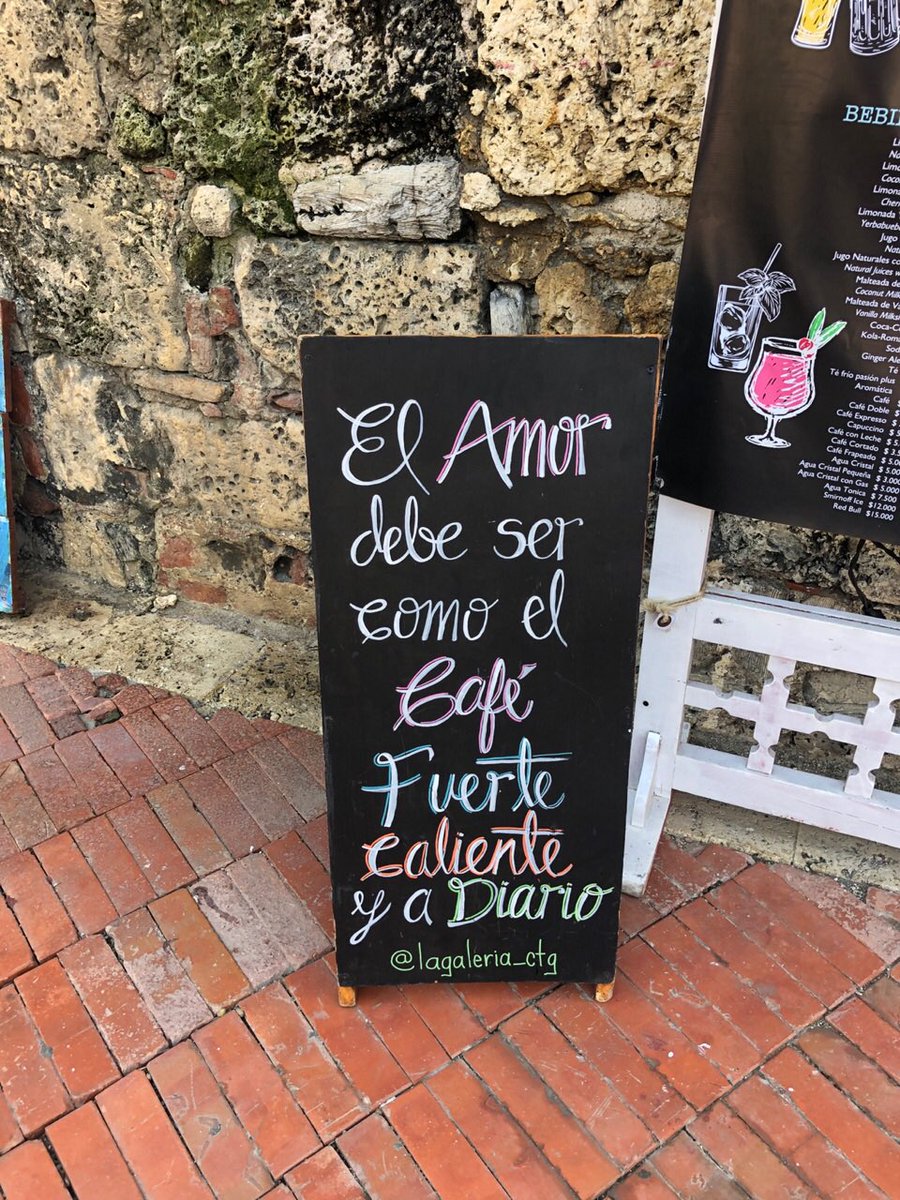 El Amor
debe ser
como el
Café
Fuerte
caliente
y a Diario
@lagaleria_ctg
Limonada
Limonada
Yerbabuena
Jugo
Jugo Naturales
Natural Juices
Malteada de
Coconut Milk
Malteada de
Vanilla Milks
Coca-C
Kola-Roma
Sod
Ginger Ale
Té
Té frío pasión plus
Aromática
Café $
Café Doble $
Café Expresso $
Capuccino $
Café con Leche $ 5.
Café Cortado $ 3.5
Café Frapeado $ 5.
Agua Cristal $ 5.00
Agua Cristal Pequeña $ 3.000
Agua Cristal con Gas $ 5.000
Agua Tonica $ 7.500
Smirnoff Ice $12.000
Red Bull $15.000